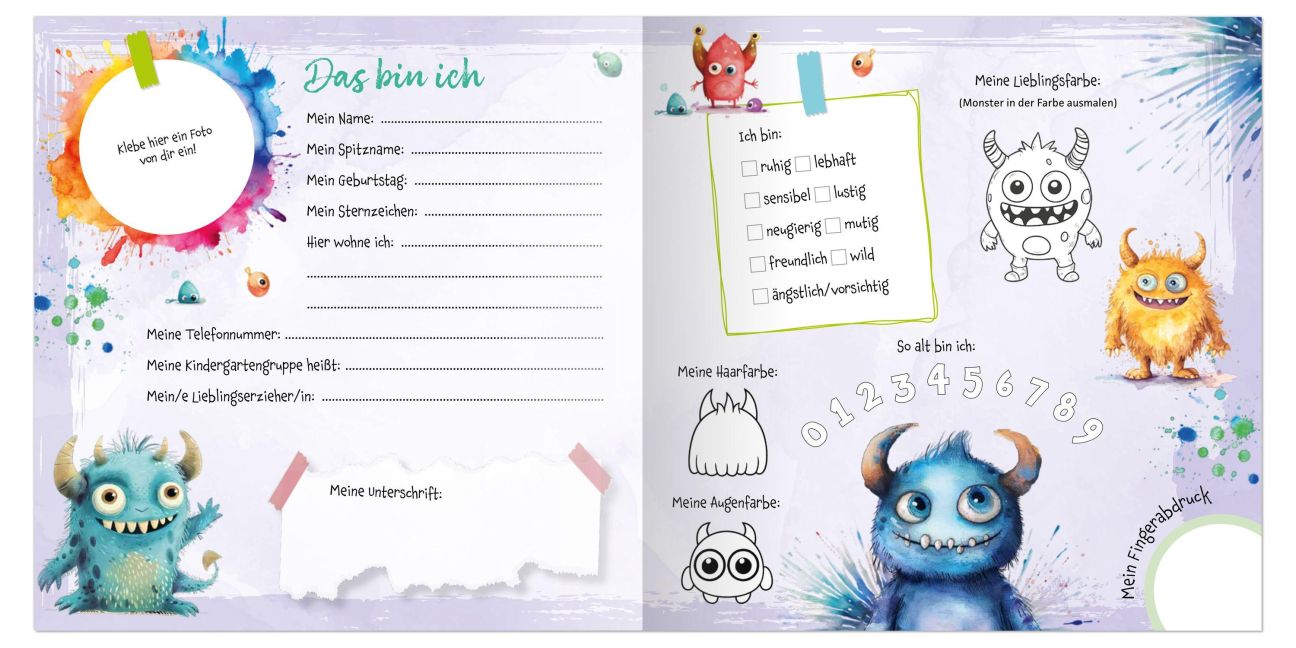 Klebe hier ein Foto
von dir ein!
Das bin ich
Mein Name:
Mein Spitzname:
Mein Geburtstag:
Mein Sternzeichen:
Hier wohne ich:
Meine Telefonnummer:
Meine Kindergartengruppe heißt:
Mein/e Lieblingserzieher/in:
Meine Unterschrift:
Ich bin:
ruhig lebhaft
sensibel lustig
neugierig mutig
freundlich wild
ängstlich/vorsichtig
Meine Lieblingsfarbe:
(Monster in der Farbe ausmalen)
So alt bin ich:
0 1 2 3 4 5 6 7 8 9
Meine Haarfarbe:
Meine Augenfarbe:
Mein Fingerabdruck